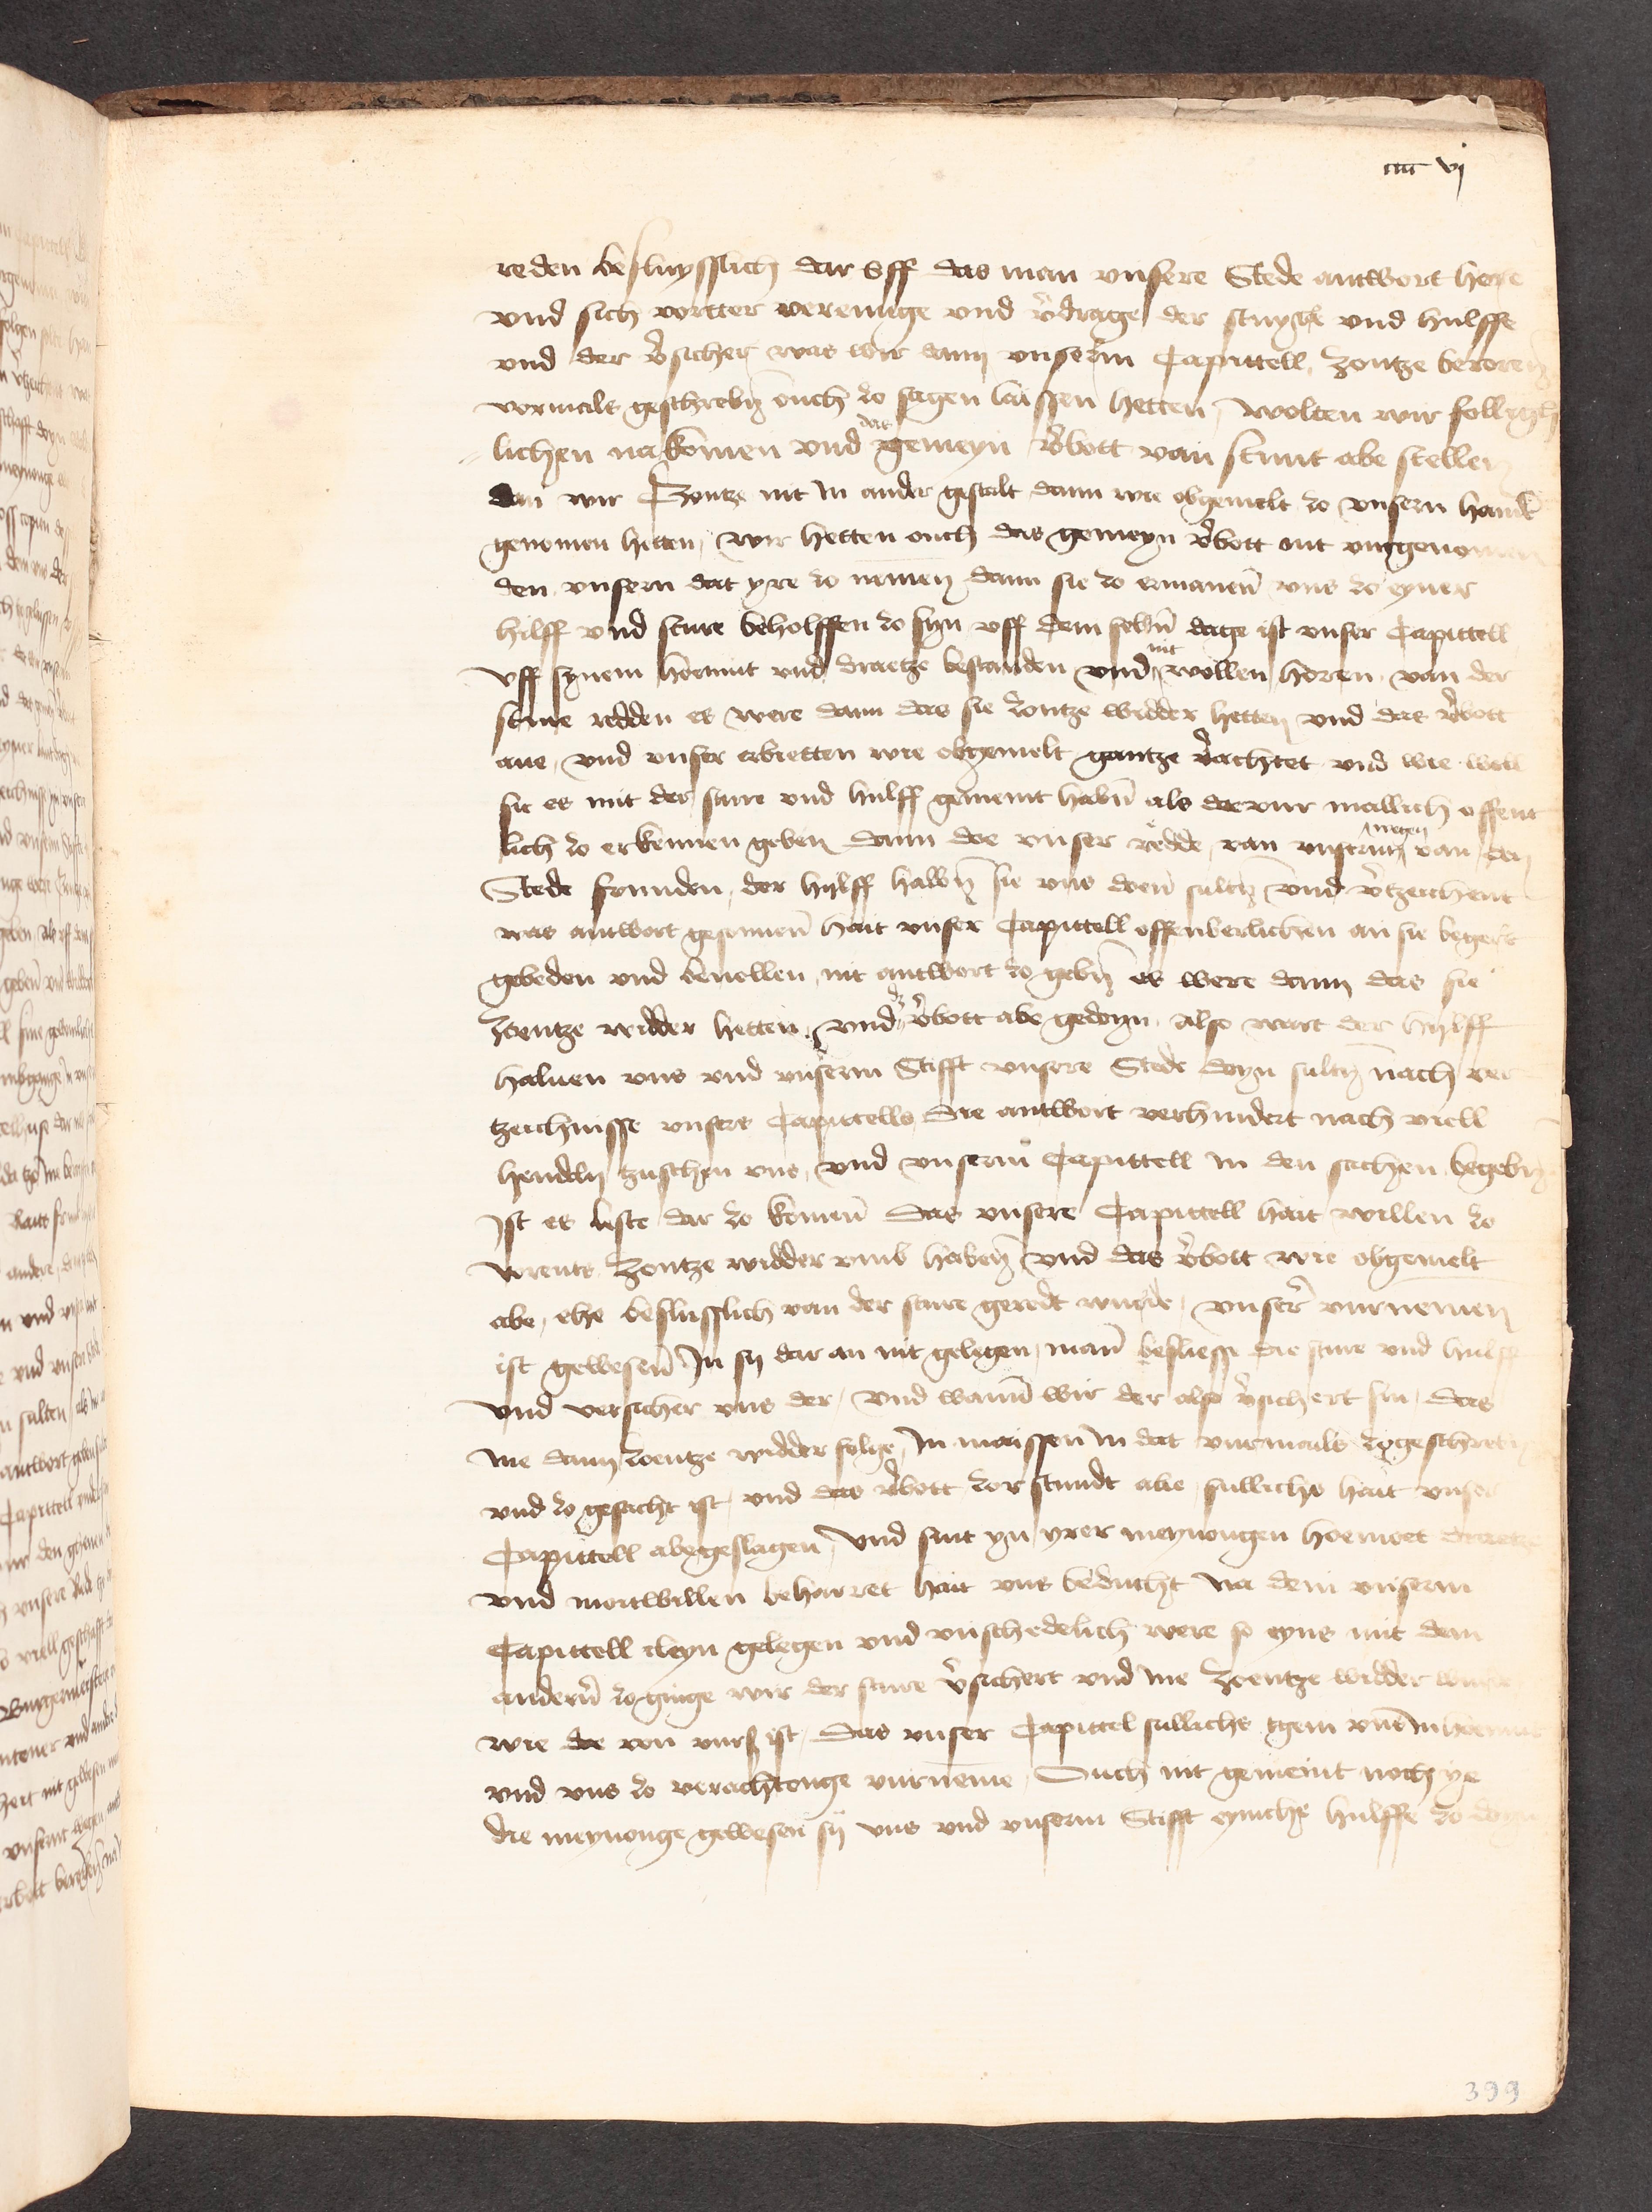 vj
reden besluysslich dar uff das man unsere Stede antwort hore
und sich vortter vereinige und v̉drage der stuyre und hulffe
und der v̉sicher was wir dann unserm Capittell Zontze beroren
vormals geschrebn ouch zo sagen laissen hetten, wolten wir follenk
lichen nakomen und das gemeyn v̉bott van stunt abe stellen
dan wir Zontze nit in ander gestalt dann wie obgemelt zo unsern hand
genomen hetten, wir hetten ouch das gemeyn v̉bott nit vurgenomen
den unsern dat yre zo nemen dann sie zo ermanen uns zo eyner
hilff und sture beholffen zo syn uff dem selbn dage ist unser Capittell
uff synem homut und draetze bestanden und nit wollen horen van der
sture redden es were dann das sie Zontze widder hetten und das v̉bott
ave, und unser erbietten wie obgemelt gantze v̉achtet und wie well
sie es mit der sture und hulff gemeint habn als da vur mallich offent
lich zo erkennen geben dann doe unser redde van unsern wegen van den
Stede frunden, der hylff halbn sie uns doen sultn und v̉tzeichent
was antwort gesonnen hait unser Capittell offenberlichen an sie begert
gebeden und bevollen, nit antwort zo gebn es were dann das sie
Zoentze widder hetten, und dz v̉bott abe gedoyn, also wart der hylff
halven uns und unserm Stifft unsere Stede doyn sultn nach ver
tzeichnisse unsers Capittells die antwort verhindert nach viell
hendeln zuschen uns, und unserm Capittell in den sachen begebn
Ist es leste dar zo komen das unsere Capittell hait willen zo
vorents Zontze widder umb haben und das v̉bott wie obgemelt
abe, ehe beslusslich van der sture geredt wurde, unser vurnemen
ist gewesen In sy dar an nit gelegen, man besliesse die sture und hulff
und versicher uns der, und wann wir der also v̉sichert sin, das
Ine dann Zoentze widder folge, In maissen in dat vurmals zogeschrebn
und zo gesacht ist, und das v̉bott zor stundt abe, sullichs hait unser
Capittell abegeslagen, und sint yn yrer meynongen hoemoet draetz
und moitwillen beharret hait uns beducht na dem unserm
Capittell cleyn gelegen und unschedelich were so eyns mit dem
andern zo ginge wir der sture v̉sichert und Ine Zoentze widder wurde
wie da von vurs ist, das unser Capittel sullichs tgein uns in hoemut
und uns zo verachtonge vurneme, Ouch nit gemeint noch ye
die meynonge gewesen sy uns und unserm Stifft eyniche hulffe zo doyn
399